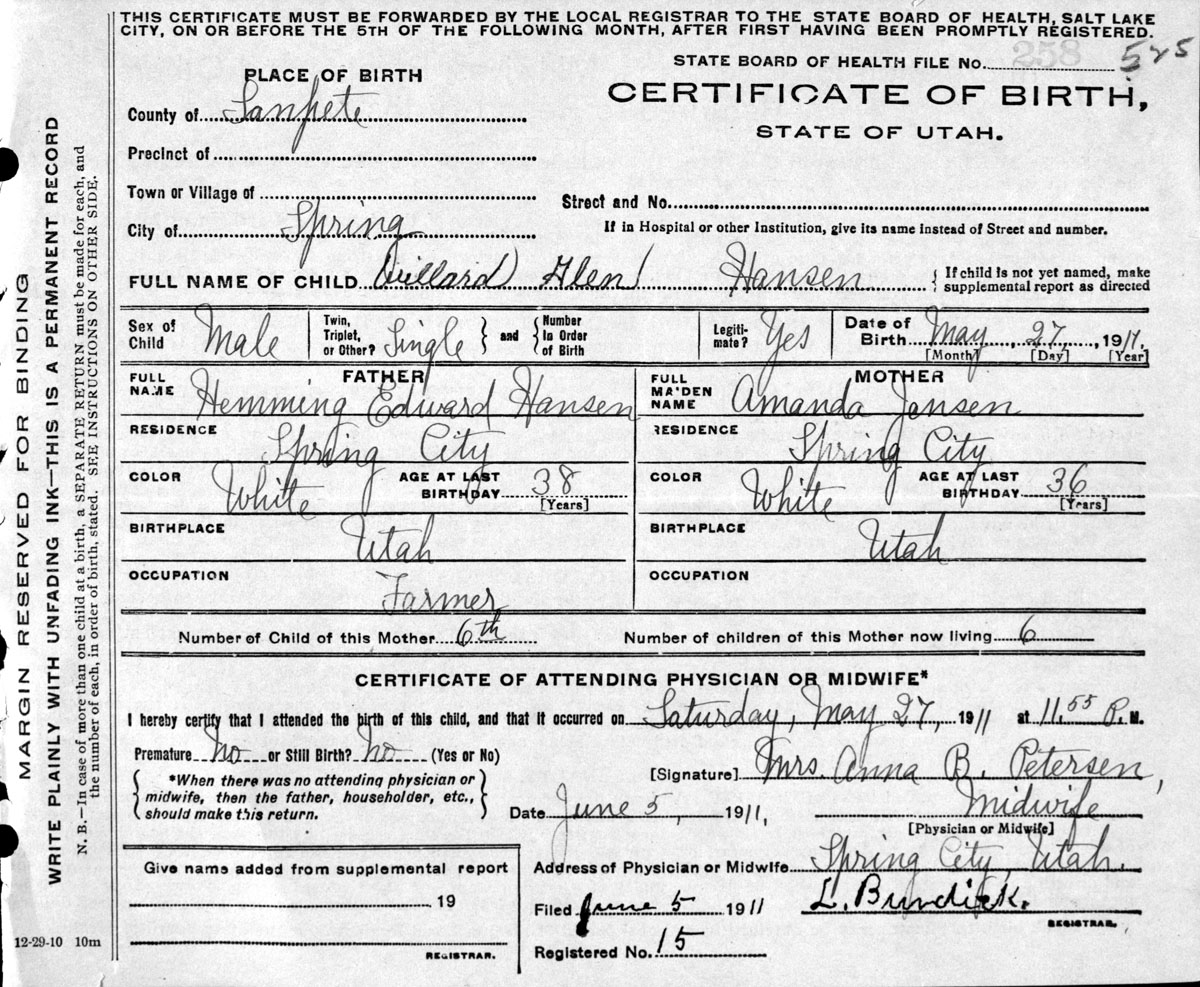 THIS CERTIFICATE MUST BE FORWARDED BY THE LOCAL REGISTRAR TO THE STATE BOARD OF HEALTH, SALT LAKE
CITY, ON OR BEFORE THE 5TH OF THE FOLLOWING MONTH, AFTER FIRST HAVING BEEN PROMPTLY REGISTERED.
STATE BOARD OF HEALTH FILE No. 258 525
CERTIFICATE OF BIRTH,
STATE OF UTAH.
PLACE OF BIRTH
County of Sanpete
Precinct of
Town or Village of
Street and No.
City of Spring
If in Hospital or other Institution, give its name instead of Street and number.
FULL NAME OF CHILD Willard Glen Hansen { If child is not yet named, make
supplemental report as directed
Sex of Child Male Twin, Triplet, or Other? Single } and { Number In Order of Birth Legiti- mate? Yes Date of Birth May 27, 1911.
[Month] [Day] [Year]
FATHER MOTHER
FULL NAME Hemming Edward Hansen FULL MAIDEN NAME Amanda Jensen
RESIDENCE Spring City RESIDENCE Spring City
COLOR White AGE AT LAST BIRTHDAY 38 [Years] COLOR White AGE AT LAST BIRTHDAY 36 [Years]
BIRTHPLACE Utah BIRTHPLACE Utah
OCCUPATION Farmer OCCUPATION
Number of Child of this Mother 6th Number of children of this Mother now living 6
CERTIFICATE OF ATTENDING PHYSICIAN OR MIDWIFE*
I hereby certify that I attended the birth of this child, and that it occurred on Saturday, May 27, 1911 at 11.55 P. M.
Premature No or Still Birth? No (Yes or No)
*When there was no attending physician or
midwife, then the father, householder, etc.,
should make this return.
[Signature] Mrs. Anna B. Petersen,
Date June 5, 1911, Midwife
[Physician or Midwife]
Give name added from supplemental report
19
REGISTRAR.
Address of Physician or Midwife Spring City, Utah.
Filed June 5 1911 L. Burdick.
REGISTRAR.
Registered No. 15
12-29-10 10m
MARGIN RESERVED FOR BINDING
WRITE PLAINLY WITH UNFADING INK—THIS IS A PERMANENT RECORD
N. B.—In case of more than one child at a birth, a SEPARATE RETURN must be made for each, and
the number of each, in order of birth, stated. SEE INSTRUCTIONS ON OTHER SIDE.